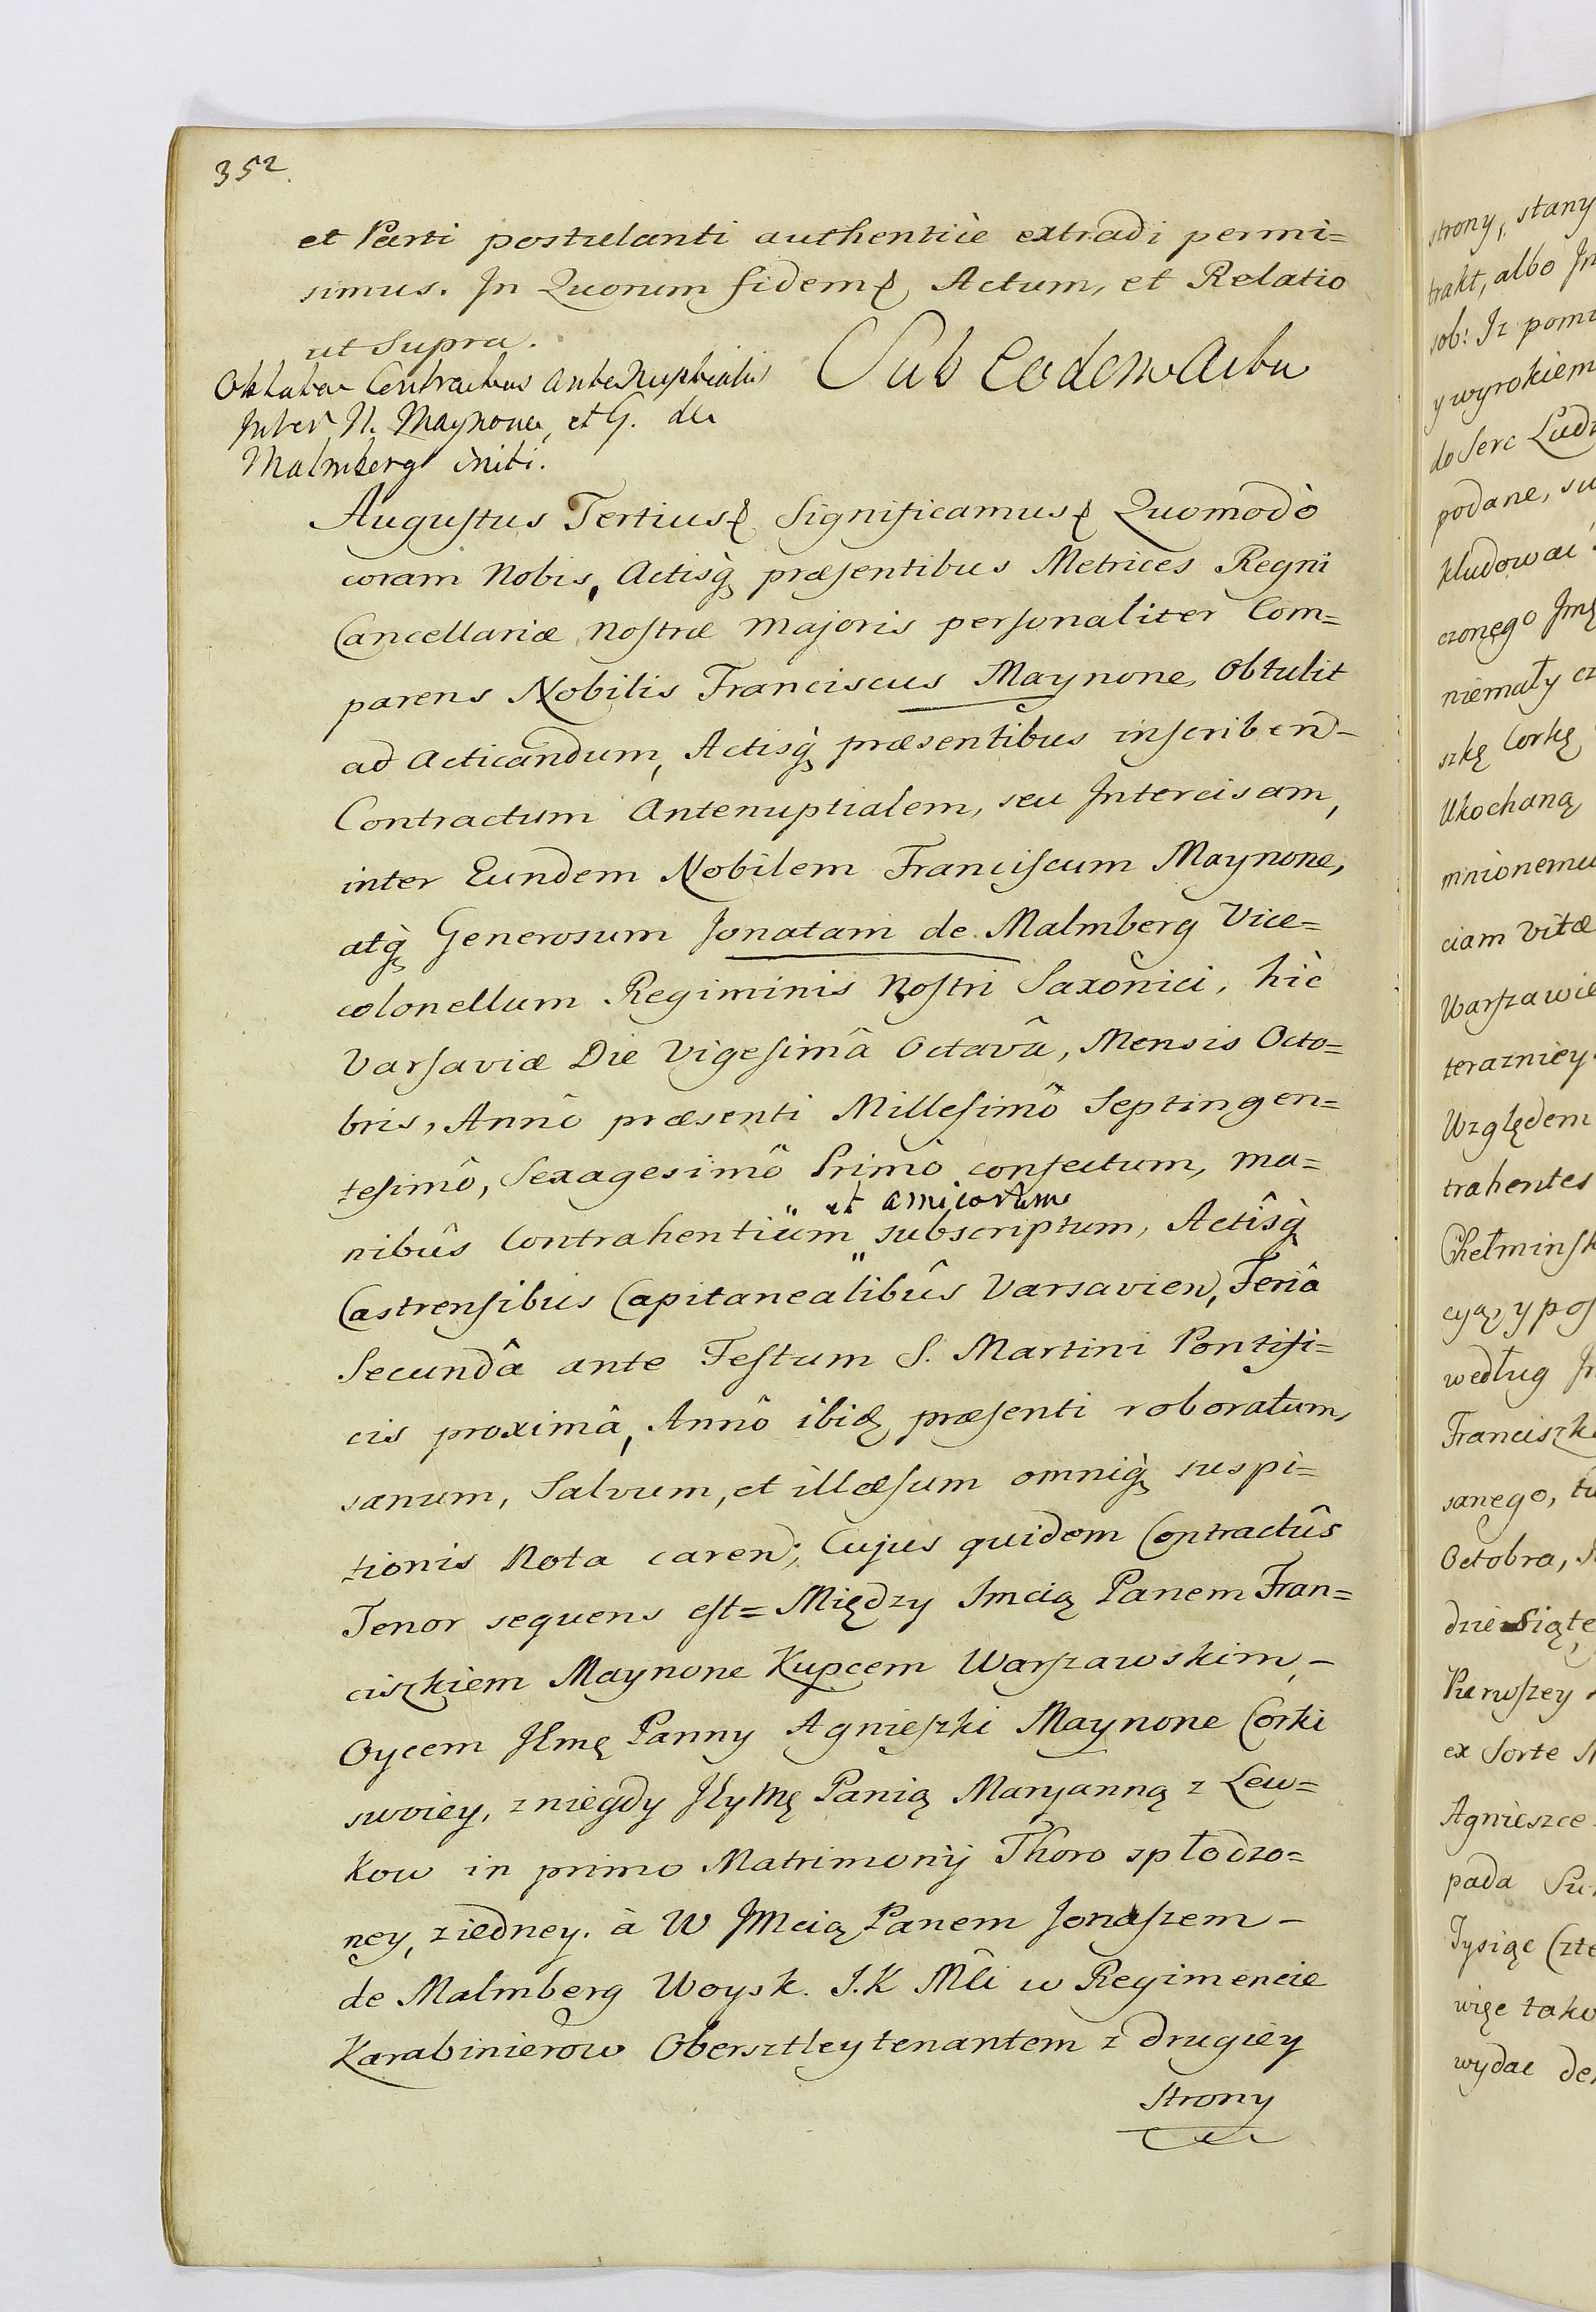 352.
et Parti postulanti authenticè extradi permi=
simus. In Quorum fidem Actum, et Relatio
ut Supra.
Oblata Contractus Antenuptialis
Inter N. Maynone, et G. de
Malmberg initi.
Sub Eodem Actu
Augustus Tertius Significamus Quomodò
coram Nobis, Actisq̀ præsentibus Metrices Regni
Cancellariæ Nostræ Majoris personaliter Com=
parens Nobilis Franciscus Maynone, Obtulit
ad Acticandum, Actisq̀ præsentibus inscribend-
Contractum Antenuptialem, seu Intercisam,
inter Eundem Nobilem Franciscum Maynone,
atq̀ Generosum Jonatam de Malmberg Vice=
colonellum Regiminis Nostri Saxonici, hìc
Varsaviæ Die Vigesimâ Octavâ, Mensis Octo=
bris, Annô præsenti Millesimô Septingen=
tesimô, Sexagesimô Primô confectum, ma=
et amicorum
nibûs Contrahentium subscriptum, Actîsq̀
Castrensibus Capitanealibûs Varsavien, Feriâ
Secundâ ante Festum S. Martini Pontifi=
cis proximâ, Annô ibid præsenti roboratum,
sanum, Salvum, et illæsum omniq̀ suspi=
tionis Nota caren; Cujus quidem Contractûs
Tenor sequens est= Między Imcią Panem Fran=
ciszkiem Maynone Kupcem Warszawskim, -
Oycem Jmę Panny Agnieszki Maynone Corki
swoiey, z niegdy JeyMę Panią Maryanną z Lew=
kow in primo Matrimonij Thoro spłodzo=
ney, z iedney. à W JMcią Panem Jonaszem -
de Malmberg Woysk. J.K Mci w Regimencie
Karabinierow Obersztleytenantem z drugiey
strony
strony, stany
trakt, albo In
sob: Iz pomi
y wyrokiem
do Serc Ludz
podane, su
kludowac
czonego Jmę
niemały cz
szkę Corkę
Ukochaną
mnionemu
ciam Vitæ
Warszawie
terazniey
Względem
trahentes
Chełminsk
cyą, y pos
według In
Franciszk
sanego, tu
Octobra,
dziesiąte
Pierwszey
ex Sorte
Agnieszce
pada Su
Tysięc Czte
więc tako
wydac de